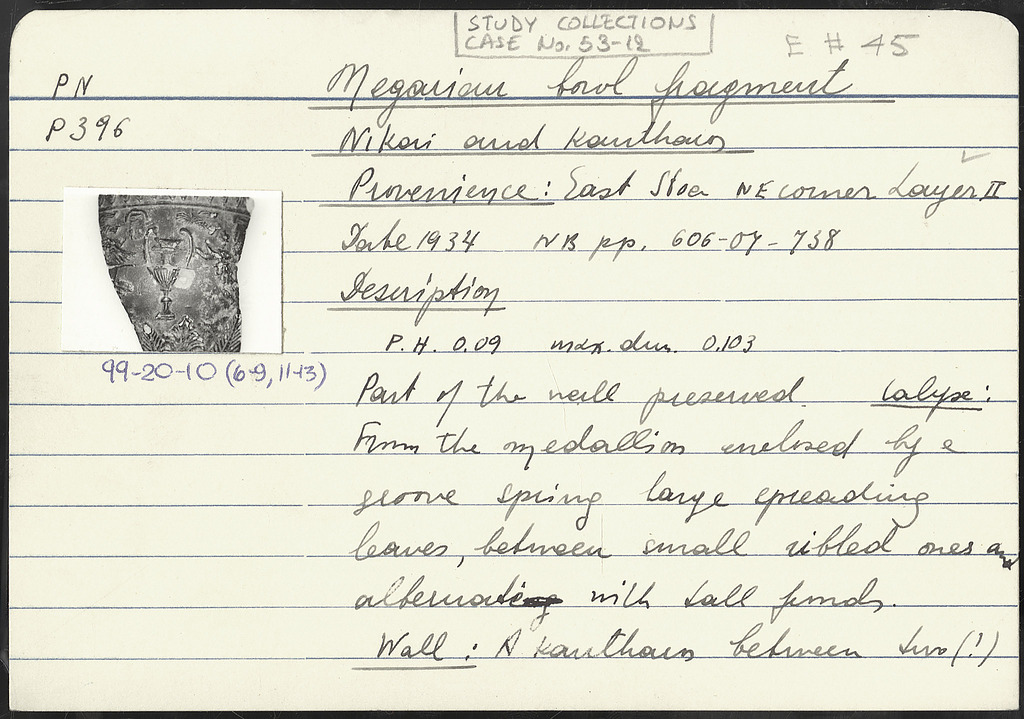 STUDY COLLECTIONS
CASE No. 53-12
E # 45
PN
P 396
Megarian bowl fragment
Nikai and kantharos
Provenience: East Stoa NE corner Layer II
Date 1934 NB pp. 606-07-738
Description
P.H. 0.09 max. dim. 0.103
99-20-10 (6-9, 11-13)
Part of the wall preserved. Calyx:
From the medallion enclosed by a
groove spring large spreading
leaves, between small ribbed ones and
alternate with tall fronds.
Wall: A kantharos between two (?)